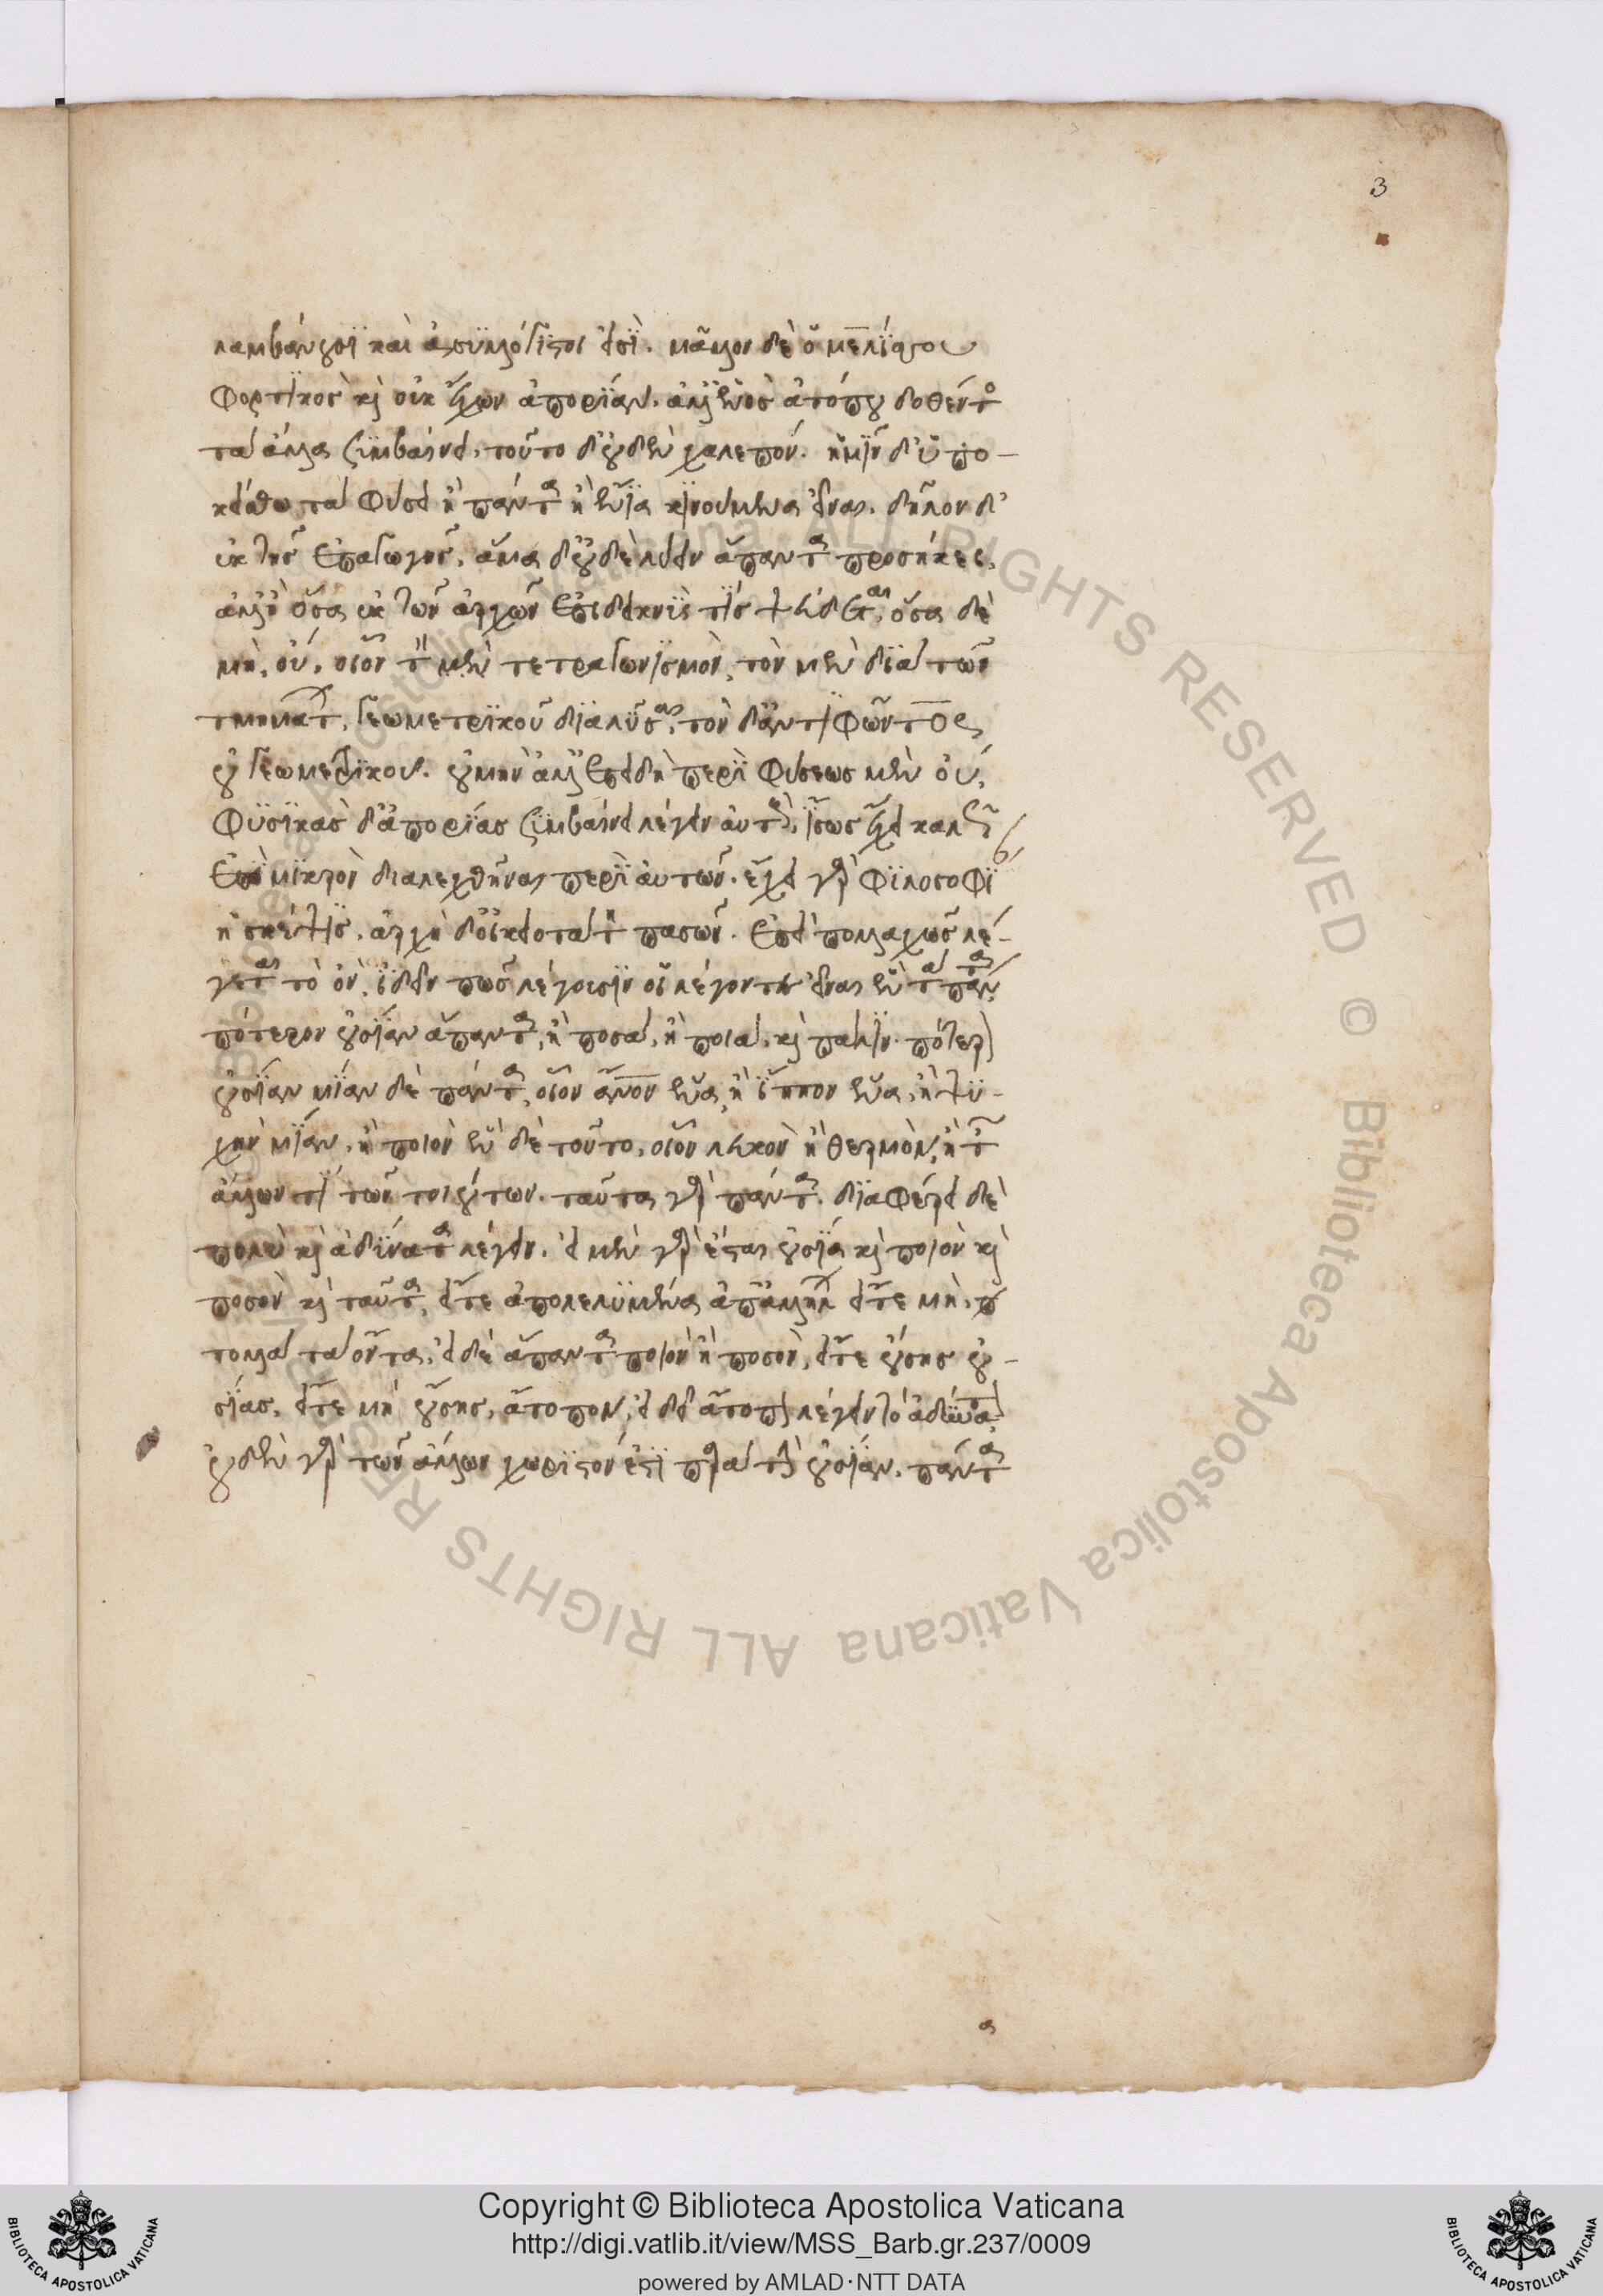 3
λαμβάνουσι καὶ ἀσυλλόγιστοί εἰσι. μᾶλλον δὲ ὁ μελίσσου
φορτικὸς καὶ οὐκ ἔχων ἀπορίαν. ἀλλ' ἑνὸς ἀτόπου δοθέντος
τὰ ἄλλα συμβαίνει. τοῦτο δ' οὐδὲν χαλεπόν. ἡμῖν δ' ὑπο-
κείσθω τὰ φύσει ἢ πάντα ἢ ἔνια κινούμενα εἶναι. δῆλον δ'
ἐκ τῆς ἐπαγωγῆς. ἅμα δ' οὐδὲ λύειν ἅπαντα προσήκει,
ἀλλ' ἢ ὅσα ἐκ τῶν ἀρχῶν ἐπιδεικνύς τις ψεύδεται, ὅσα δὲ
μὴ, οὔ. οἷον τὸν μὲν τετραγωνισμὸν, τὸν μὲν διὰ τῶν
τμημάτων, γεωμετρικοῦ διαλῦσαι, τὸν δ' ἀντιφῶντος
οὐ γεωμετρικοῦ. οὐ μὴν ἀλλ' ἐπειδὴ περὶ φύσεως μὲν οὔ,
φυσικὰς δ' ἀπορίας συμβαίνει λέγειν αὐτοῖς, ἴσως ἔχει καλῶς
ἐπὶ μικρὸν διαλεχθῆναι περὶ αὐτῶν. ἔχει γὰρ φιλοσοφί
ἡ σκέψις. ἀρχὴ δ' οἰκειοτάτη πασῶν. ἐπεὶ πολλαχῶς λέ-
γεται τὸ ὄν, ἰδεῖν πῶς λέγουσιν οἱ λέγοντες εἶναι ἓν τὰ πάντα,
πότερον οὐσίαν ἅπαντα, ἢ ποσὰ, ἢ ποιά. καὶ πάλιν. πότερον
οὐσίαν μίαν δὲ πάντα, οἷον ἄνον ἕνα, ἢ ἵππον ἕνα, ἢ ψυ-
χὴν μίαν, ἢ ποιὸν ἓν δὲ τοῦτο, οἷον λευκὸν ἢ θερμὸν, ἢ τῶν
ἄλλων τι τῶν τοιούτων. ταῦτα γὰρ πάντα διαφέρει δὲ
πολὺ καὶ ἀδύνατα λέγειν. εἰ μὲν γὰρ ἔσται οὐσία καὶ ποιὸν καὶ
ποσὸν καὶ ταῦτα, εἴτε ἀπολελυμένα ἀπ' ἀλλήλων εἴτε μὴ,
πολλὰ τὰ ὄντα. εἰ δὲ ἅπαντα ποιὸν ἢ ποσὸν, εἴτε οὔσης οὐ-
σίας, εἴτε μὴ οὔσης, ἄτοπον, εἰ δεῖ ἄτοπον λέγειν τὸ ἀδύνατον.
οὐδὲν γὰρ τῶν ἄλλων χωριστόν ἐστι παρὰ τὴν οὐσίαν. πάντα
ALL RIGHTS RESERVED © Biblioteca Apostolica Vaticana ALL RIGHTS RESERVED © Biblioteca Apostolica Vaticana
Copyright © Biblioteca Apostolica Vaticana
http://digi.vatlib.it/view/MSS_Barb.gr.237/0009
powered by AMLAD·NTT DATA
BIBLIOTECA APOSTOLICA VATICANA
BIBLIOTECA APOSTOLICA VATICANA